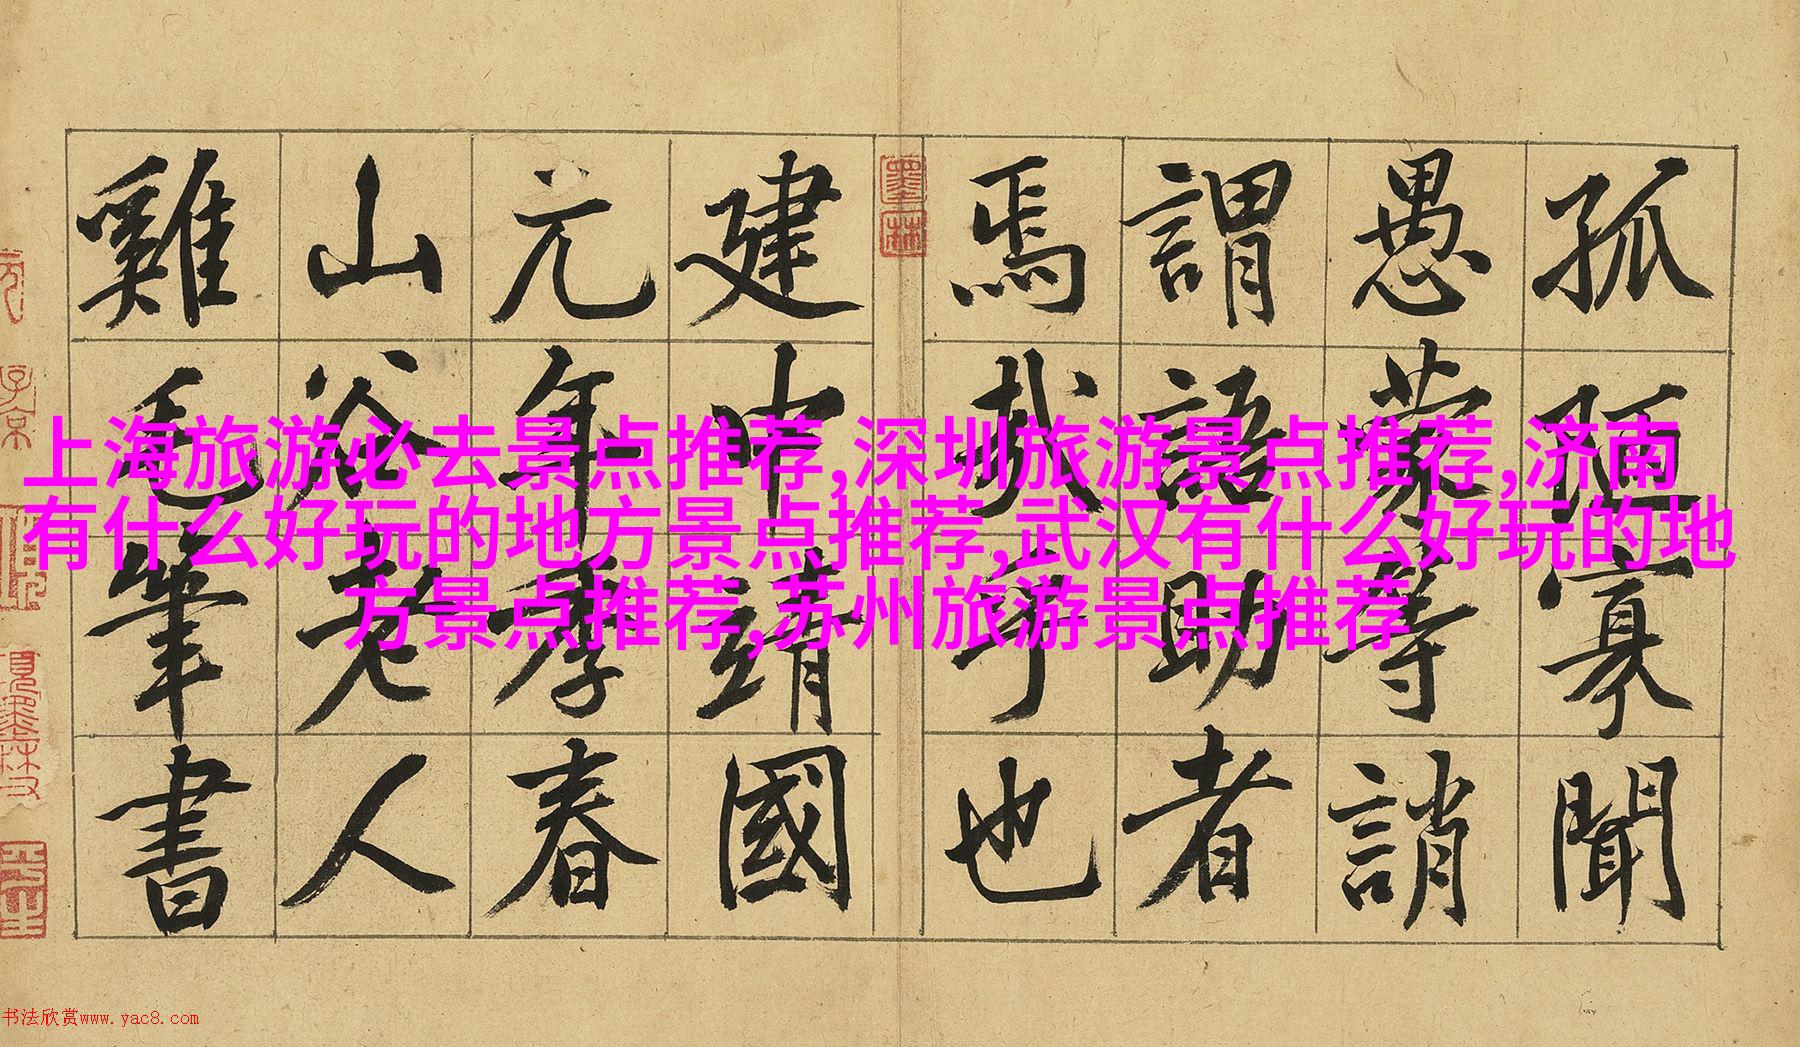 孤陋寡聞
愚蒙等誚
謂語助者
焉哉乎也
建中靖國
元年季春
山谷老人
雞毛筆書
墨林
上海旅游必去景点推荐,深圳旅游景点推荐,济南
有什么好玩的地方景点推荐,武汉有什么好玩的地
方景点推荐,苏州旅游景点推荐
书法欣赏www.yac8.com